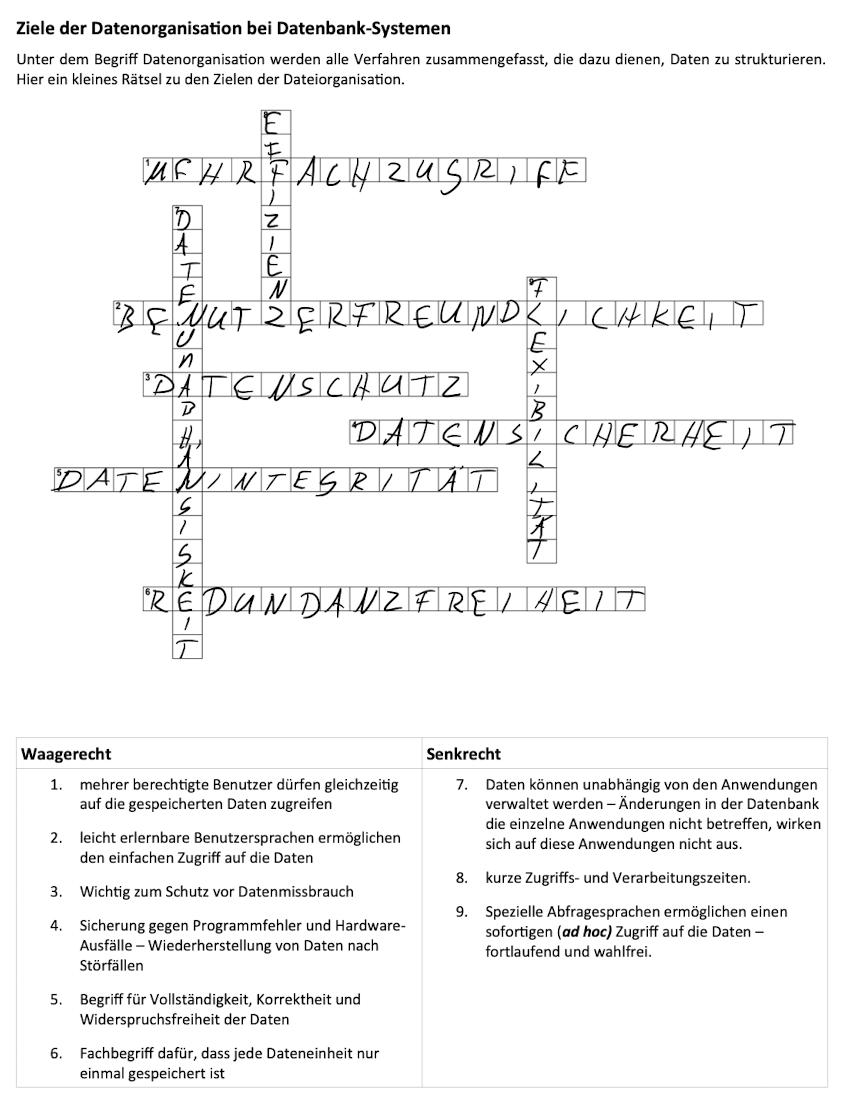 Ziele der Datenorganisation bei Datenbank-Systemen
Unter dem Begriff Datenorganisation werden alle Verfahren zusammengefasst, die dazu dienen, Daten zu strukturieren.
Hier ein kleines Rätsel zu den Zielen der Dateiorganisation.
8 EFFIZIENZ
1 MEHRFACHZUGRIFF
7 DATENUNABHÄNGIGKEIT
9 FLEXIBILITÄT
2 BENUTZERFREUNDLICHKEIT
3 DATENSCHUTZ
4 DATENSICHERHEIT
5 DATENINTEGRITÄT
6 REDUNDANZFREIHEIT
Waagerecht
1. mehrer berechtigte Benutzer dürfen gleichzeitig
auf die gespeicherten Daten zugreifen
2. leicht erlernbare Benutzersprachen ermöglichen
den einfachen Zugriff auf die Daten
3. Wichtig zum Schutz vor Datenmissbrauch
4. Sicherung gegen Programmfehler und Hardware-
Ausfälle – Wiederherstellung von Daten nach
Störfällen
5. Begriff für Vollständigkeit, Korrektheit und
Widerspruchsfreiheit der Daten
6. Fachbegriff dafür, dass jede Dateneinheit nur
einmal gespeichert ist
Senkrecht
7. Daten können unabhängig von den Anwendungen
verwaltet werden – Änderungen in der Datenbank
die einzelne Anwendungen nicht betreffen, wirken
sich auf diese Anwendungen nicht aus.
8. kurze Zugriffs- und Verarbeitungszeiten.
9. Spezielle Abfragesprachen ermöglichen einen
sofortigen (ad hoc) Zugriff auf die Daten –
fortlaufend und wahlfrei.